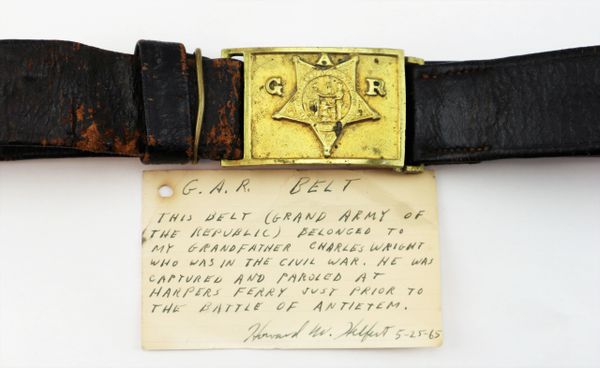 G A R
G.A.R. BELT
THIS BELT (GRAND ARMY OF
THE REPUBLIC) BELONGED TO
MY GRANDFATHER CHARLES WRIGHT
WHO WAS IN THE CIVIL WAR. HE WAS
CAPTURED AND PAROLED AT
HARPERS FERRY JUST PRIOR TO
THE BATTLE OF ANTIETEM.
Howard W. 5-25-65